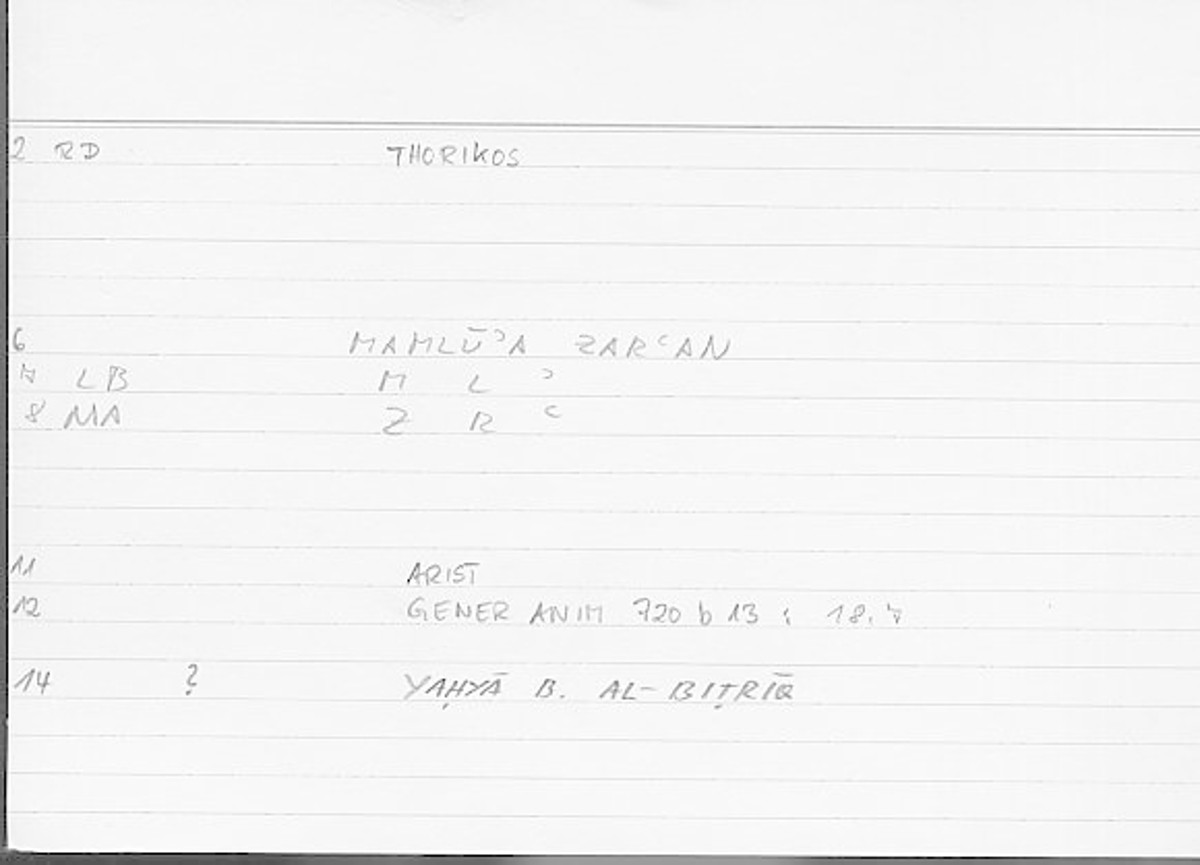 2 RD THORIKOS
6 MAMLŪʾA ZARʿAN
7 LB M L ʾ
8 MA Z R ʿ
11 ARIST
12 GENER ANIM 720 b 13 : 18.7
14 ? YAḤYĀ B. AL-BIṬRĪQ